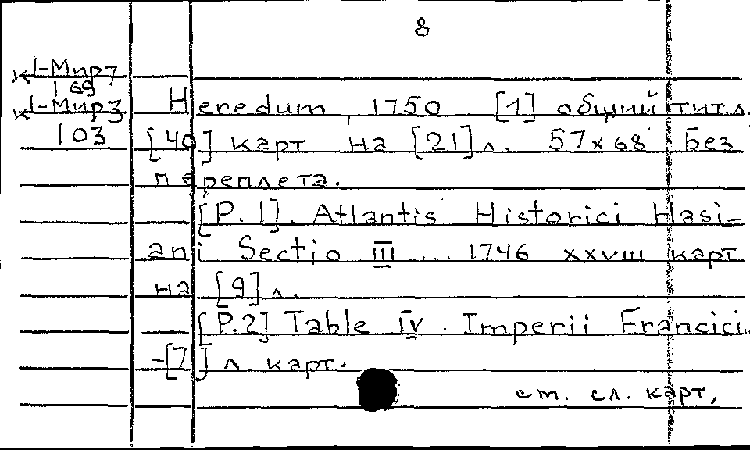 8
К1-Мир7
169
К1-Мир3
103
Heredum, 1750 [1] общий титл.
[40] карт на [21] л. 57x68 Без
переплета.
[P. 1]. Atlantis Historici Hasi-
ani Sectio III ... 1746 XXVIII карт
на [9] л.
[P.2] Table IV. Imperii Francici.
-[7] л. карт.
см. сл. карт.